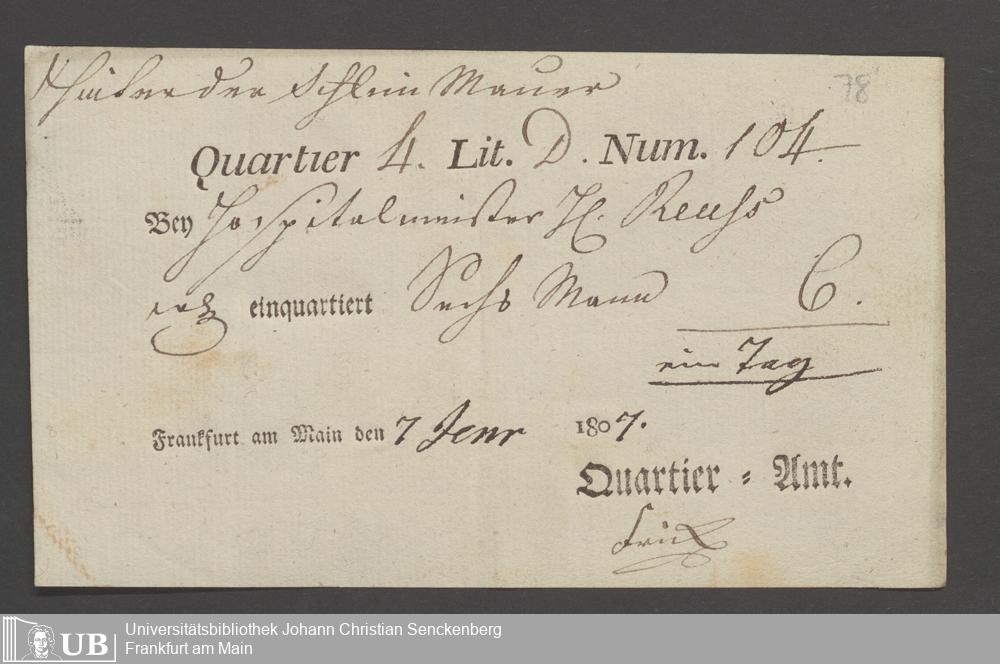 hinter der Schlim Mauer
78
Quartier 4. Lit. D. Num. 104.
Bey Hospitalmeister H. Reuss
einquartiert Sechs Mann 6.
ein Tag
Frankfurt am Main den 7 Jenr 1807.
Quartier = Amt.
UB
Universitätsbibliothek Johann Christian Senckenberg
Frankfurt am Main